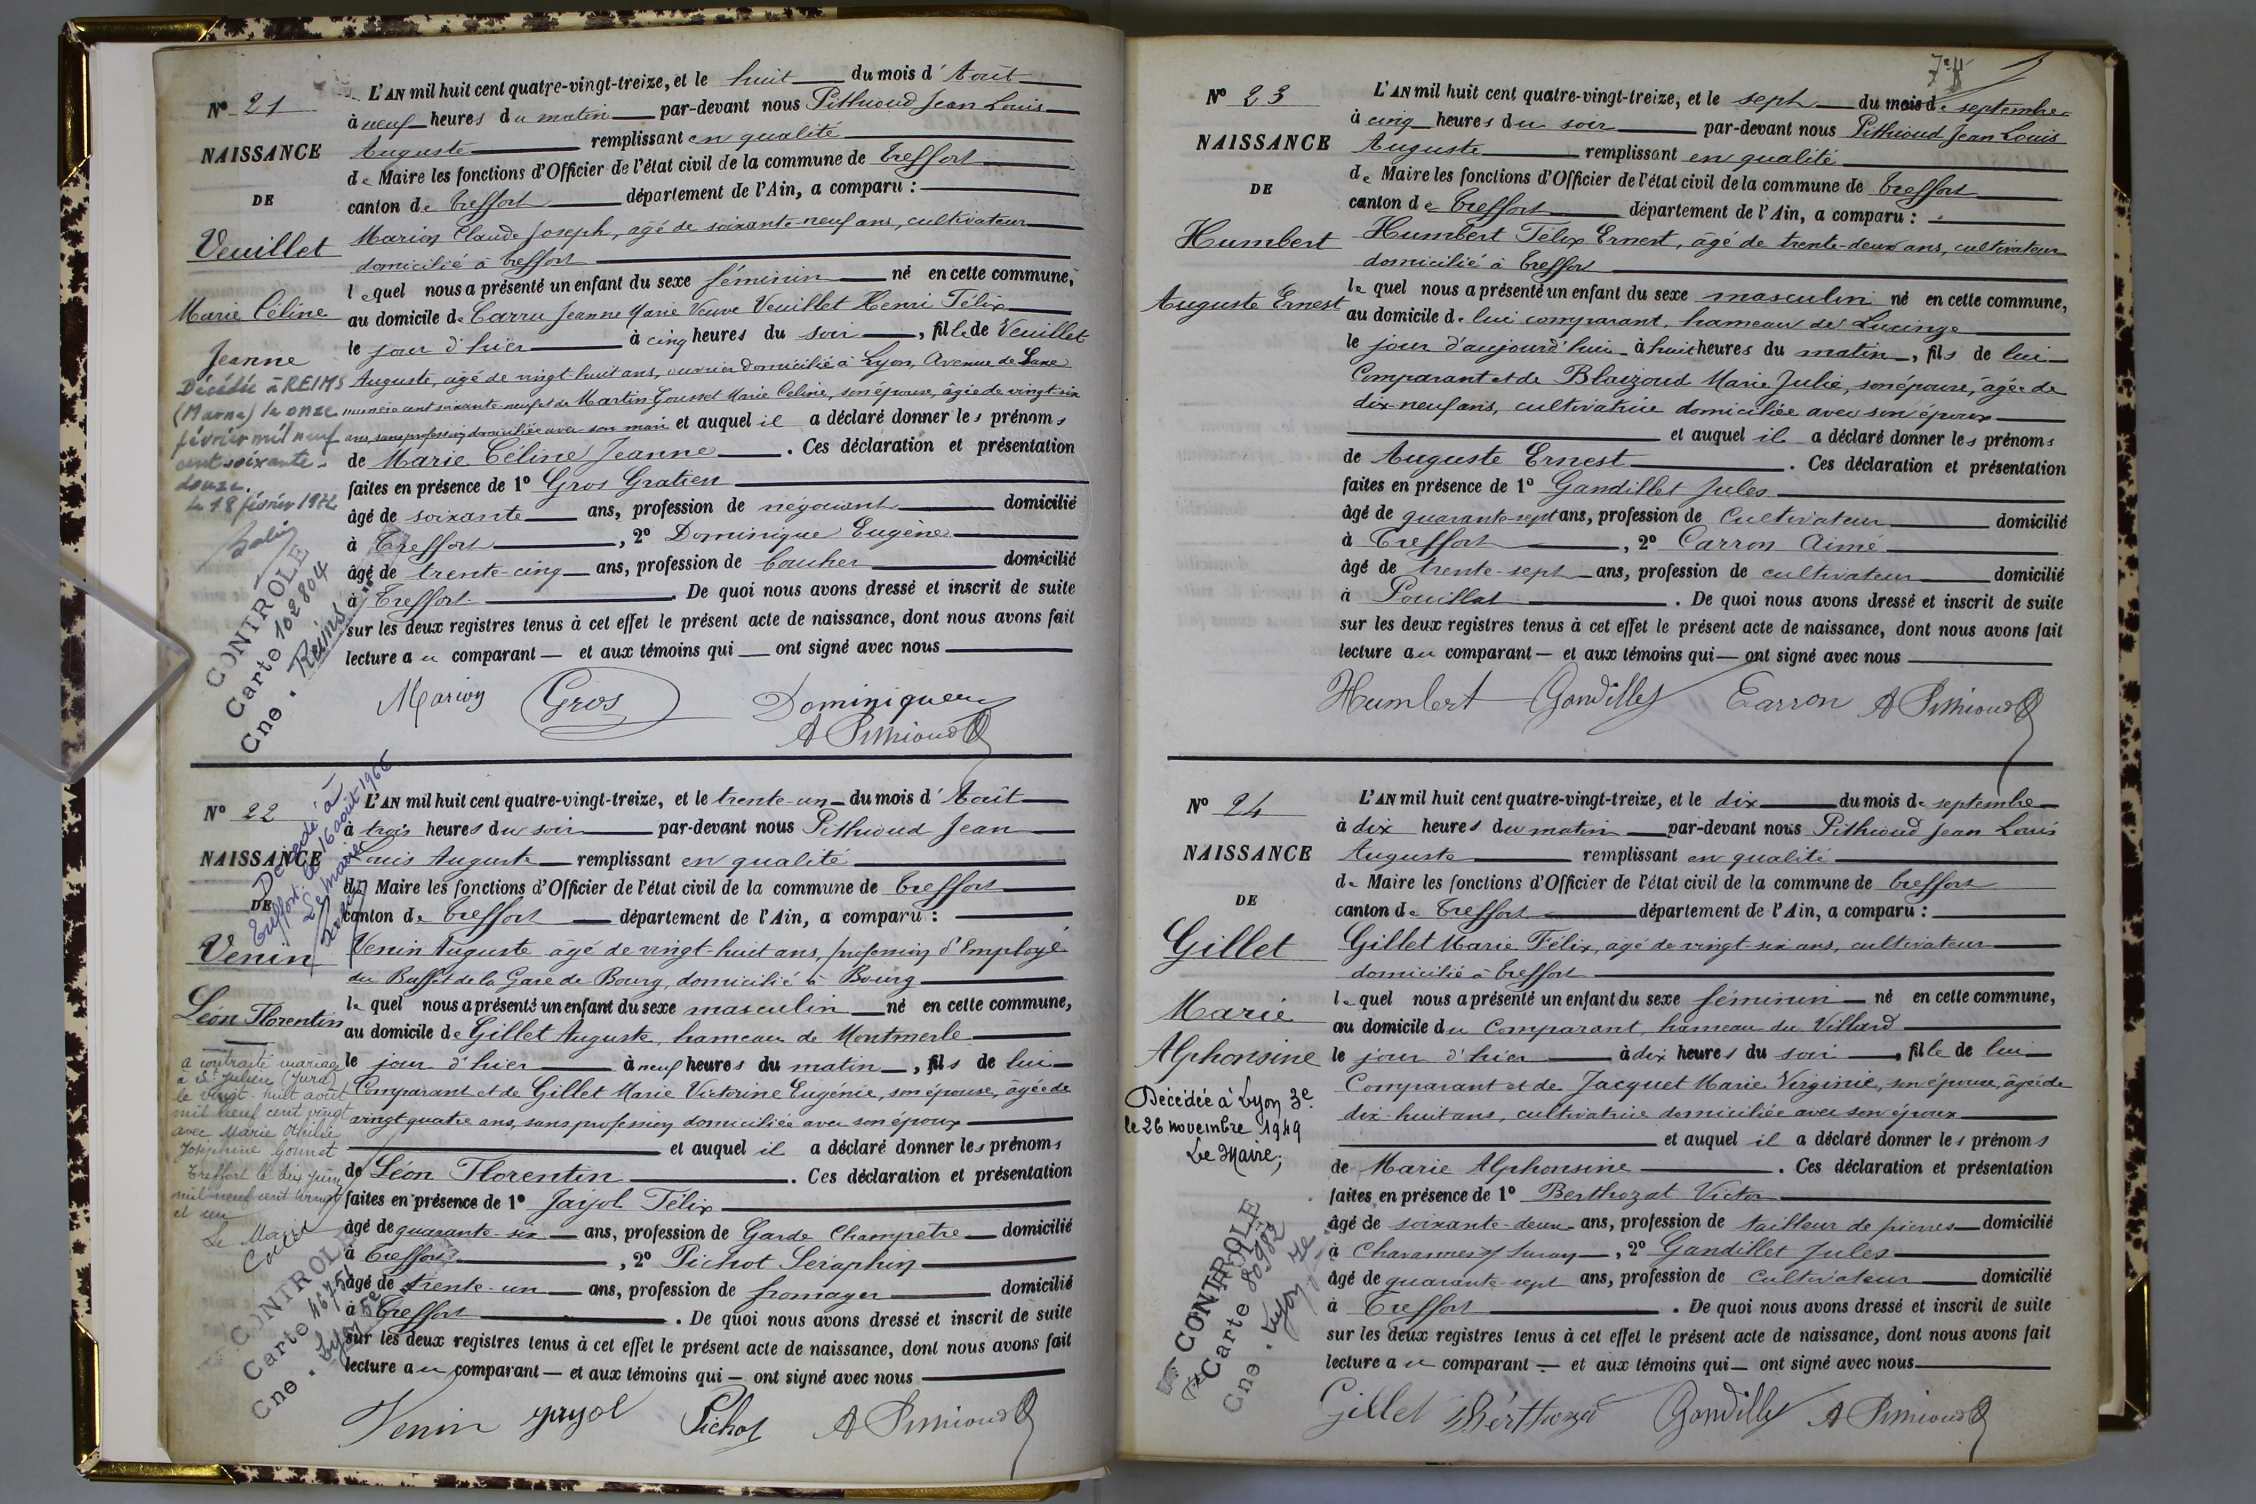 N° 21
NAISSANCE
DE
Veuillet
Marie Céline
Jeanne
Décédée à REIMS
(Marne) le onze
février mil neuf
cent soixante-
douze.
le 18 février 1972
CONTROLE
Carte 102804
Cne. Reims
L'AN mil huit cent quatre-vingt-treize, et le huit du mois d'Août
à neuf heures du matin par-devant nous Pithioud Jean Louis
Auguste remplissant en qualité
de Maire les fonctions d'Officier de l'état civil de la commune de Treffort
canton de Treffort département de l'Ain, a comparu :
Marion Claude Joseph, âgé de soixante-neuf ans, cultivateur
domicilié à Treffort
lequel nous a présenté un enfant du sexe féminin né en cette commune,
au domicile de Carru Jeanne Marie Veuve Veuillet Henri Félix
le jour d'hier à cinq heures du soir, fille de Veuillet
Auguste, âgé de vingt-huit ans, ouvrier domicilié à Lyon, Avenue de Saxe
numéro cent soixante-neuf et de Martin Gousset Marie Céline, son épouse, âgée de vingt-six
ans, sans profession domiciliée avec son mari et auquel il a déclaré donner les prénoms
de Marie Céline Jeanne. Ces déclaration et présentation
faites en présence de 1° Gros Gratien
âgé de soixante ans, profession de négociant domicilié
à Treffort, 2° Dominique Eugène
âgé de trente-cinq ans, profession de boucher domicilié
à Treffort. De quoi nous avons dressé et inscrit de suite
sur les deux registres tenus à cet effet le présent acte de naissance, dont nous avons fait
lecture au comparant et aux témoins qui ont signé avec nous
Marion Gros Dominique
A Pithioud
N° 22
NAISSANCE
DE
Venin
Léon Florentin
Décédé à
Treffort le 16 août 1966
Le Maire
a contracté mariage
à St Julien (Jura)
le vingt-huit août
mil neuf cent vingt
avec Marie
Joséphine Gonnet
Treffort le dix juin
mil neuf cent vingt
et un
Le Maire
CONTROLE
Carte 46751
Cne. Lyon 5e
L'AN mil huit cent quatre-vingt-treize, et le trente-un du mois d'Août
à trois heures du soir par-devant nous Pithioud Jean
Louis Auguste remplissant en qualité
de Maire les fonctions d'Officier de l'état civil de la commune de Treffort
canton de Treffort département de l'Ain, a comparu :
Venin Auguste âgé de vingt-huit ans, profession d'Employé
du Buffet de la Gare de Bourg, domicilié à Bourg
lequel nous a présenté un enfant du sexe masculin né en cette commune,
au domicile de Gillet Auguste, hameau de Montmerle
le jour d'hier à neuf heures du matin, fils de lui
Comparant et de Gillet Marie Victorine Eugénie, son épouse, âgée de
vingt-quatre ans, sans profession domiciliée avec son époux
et auquel il a déclaré donner les prénoms
de Léon Florentin. Ces déclaration et présentation
faites en présence de 1° Jayol Félix
âgé de quarante-six ans, profession de Garde Champêtre domicilié
à Treffort, 2° Pichot Séraphin
âgé de trente-un ans, profession de fromager domicilié
à Treffort. De quoi nous avons dressé et inscrit de suite
sur les deux registres tenus à cet effet le présent acte de naissance, dont nous avons fait
lecture au comparant et aux témoins qui ont signé avec nous
Venin Jayol Pichot A Pithioud
N° 23
NAISSANCE
DE
Humbert
Auguste Ernest
L'AN mil huit cent quatre-vingt-treize, et le sept du mois de septembre
à cinq heures du soir par-devant nous Pithioud Jean Louis
Auguste remplissant en qualité
de Maire les fonctions d'Officier de l'état civil de la commune de Treffort
canton de Treffort département de l'Ain, a comparu :
Humbert Félix Ernest, âgé de trente-deux ans, cultivateur
domicilié à Treffort
lequel nous a présenté un enfant du sexe masculin né en cette commune,
au domicile de lui comparant, hameau de Lucinge
le jour d'aujourd'hui à huit heures du matin, fils de lui
Comparant et de Blaizoud Marie Julie, son épouse, âgée de
dix-neuf ans, cultivatrice domiciliée avec son époux
et auquel il a déclaré donner les prénoms
de Auguste Ernest. Ces déclaration et présentation
faites en présence de 1° Gandillet Jules
âgé de quarante-sept ans, profession de Cultivateur domicilié
à Treffort, 2° Carron Aimé
âgé de trente-sept ans, profession de cultivateur domicilié
à Pouillat. De quoi nous avons dressé et inscrit de suite
sur les deux registres tenus à cet effet le présent acte de naissance, dont nous avons fait
lecture au comparant et aux témoins qui ont signé avec nous
Humbert Gandillet Carron A Pithioud
N° 24
NAISSANCE
DE
Gillet
Marie
Alphonsine
Décédée à Lyon 3e.
le 26 novembre 1949
Le Maire;
CONTROLE
Carte 80982
Cne. Lyon 7e
L'AN mil huit cent quatre-vingt-treize, et le dix du mois de septembre
à dix heures du matin par-devant nous Pithioud Jean Louis
Auguste remplissant en qualité
de Maire les fonctions d'Officier de l'état civil de la commune de Treffort
canton de Treffort département de l'Ain, a comparu :
Gillet Marie Félix, âgé de vingt-six ans, cultivateur
domicilié à Treffort
lequel nous a présenté un enfant du sexe féminin né en cette commune,
au domicile du Comparant, hameau du Villard
le jour d'hier à dix heures du soir, fille de lui
Comparant et de Jacquet Marie Virginie, son épouse, âgée de
dix-huit ans, cultivatrice domiciliée avec son époux
et auquel il a déclaré donner les prénoms
de Marie Alphonsine. Ces déclaration et présentation
faites en présence de 1° Berthozat Victor
âgé de soixante-deux ans, profession de tailleur de pierres domicilié
à Chavannes s/ Suran, 2° Gandillet Jules
âgé de quarante-sept ans, profession de Cultivateur domicilié
à Treffort. De quoi nous avons dressé et inscrit de suite
sur les deux registres tenus à cet effet le présent acte de naissance, dont nous avons fait
lecture au comparant et aux témoins qui ont signé avec nous
Gillet Berthozat Gandillet A Pithioud